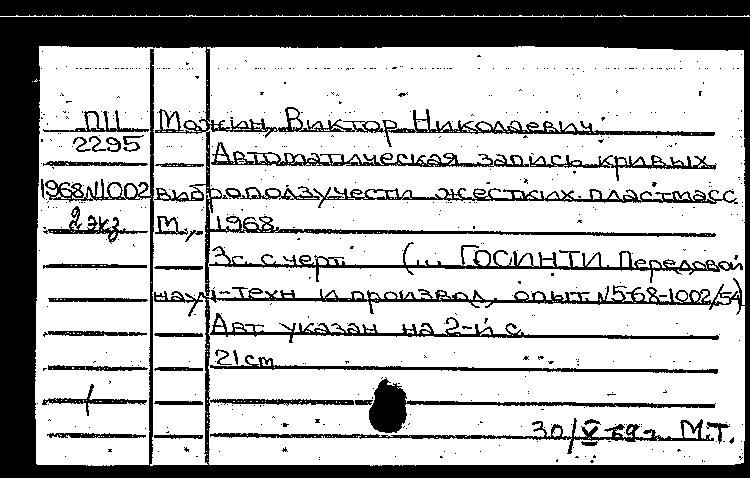 ПП Можин, Виктор Николаевич.
2295 Автоматическая запись кривых
1968№1002 виброползучести жестких пластмасс
2 экз. М., 1968.
3с. с черт. (... ГОСИНТИ. Передовой
науч-техн и производ, опыт №5-68-1002/54)
Авт указан на 2-й с.
21 cm
30/V-69 г. М.Т.